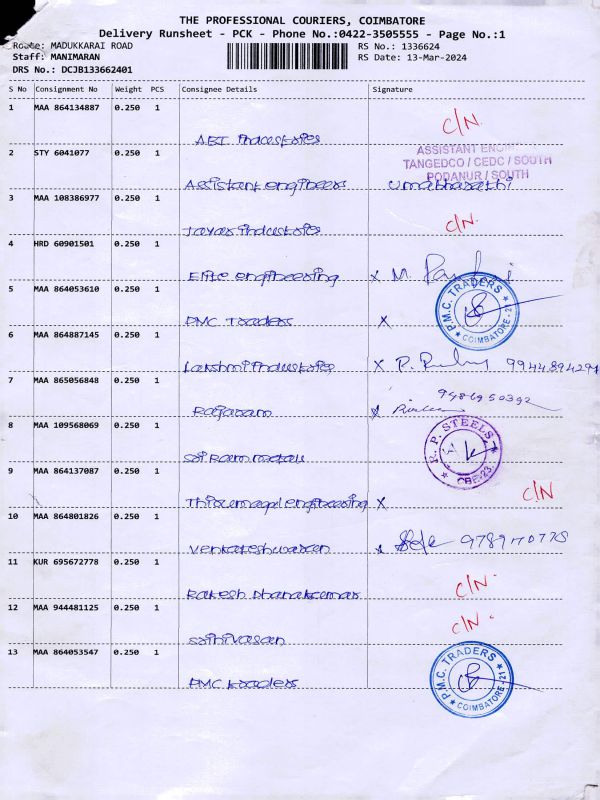 THE PROFESSIONAL COURIERS, COIMBATORE
Delivery Runsheet - PCK - Phone No.:0422-3505555 - Page No.:1
Route: MADUKKARAI ROAD RS No.: 1336624
Staff: MANIMARAN RS Date: 13-Mar-2024
DRS No.: DCJB133662401
S No Consignment No Weight PCS Consignee Details Signature
1 MAA 864134887 0.250 1
C/N.
AEI Industries
2 STY 6041077 0.250 1
ASSISTANT
TANGEDCO / CEDC / SOUTH
PODANUR / SOUTH
Assistant engineers umabharathi
3 MAA 108386977 0.250 1
C/N.
Industries
4 HRD 60901501 0.250 1
Elite engineering x M.
5 MAA 864053610 0.250 1
P.M.C. TRADERS
COIMBATORE-21
PMC Traders x
6 MAA 864887145 0.250 1
Lakshmi Industries x R. 9944894294
7 MAA 865056848 0.250 1
9486950392
Rajaram x
8 MAA 109568069 0.250 1
R. P. STEELS
CBE-23
Sri Ram metall
9 MAA 864137087 0.250 1
C/N
Thirumagal engineering x
10 MAA 864801826 0.250 1
Venkateshwaran x
11 KUR 695672778 0.250 1
C/N.
Rakesh Dhanakumar
12 MAA 944481125 0.250 1
C/N.
Srinivasan
13 MAA 864053547 0.250 1
P.M.C. TRADERS
COIMBATORE-21
PMC traders